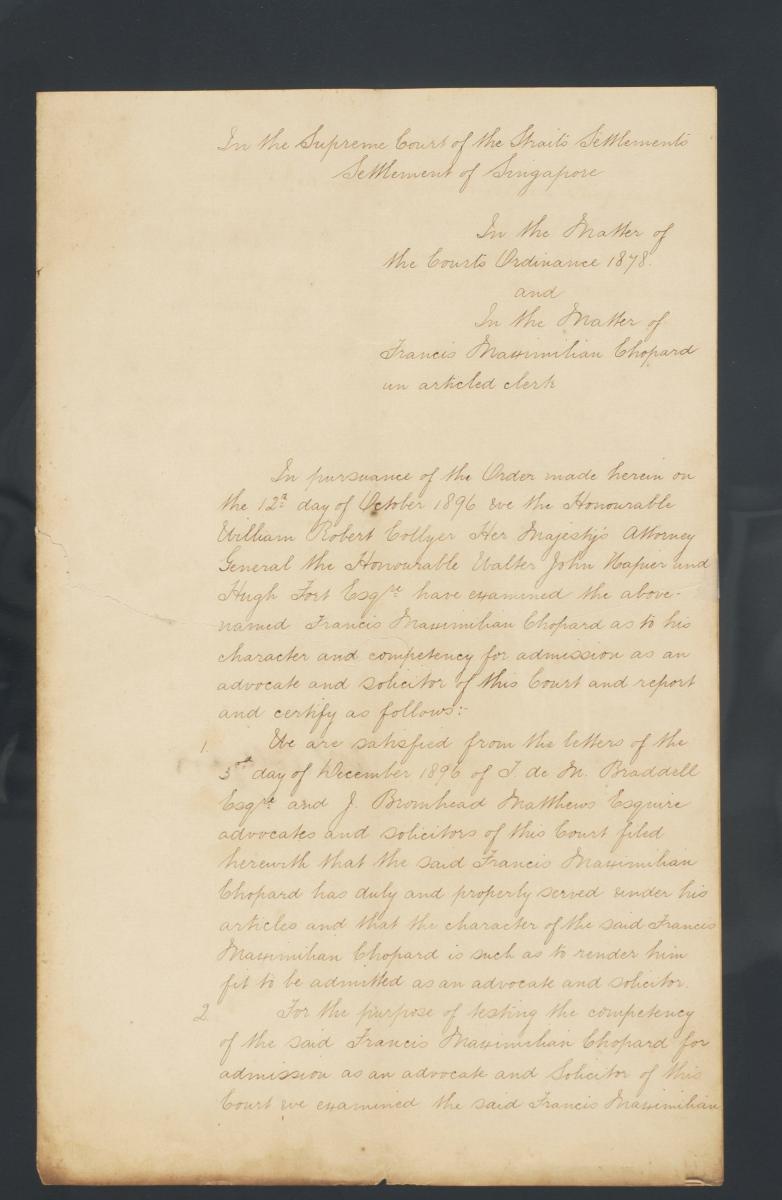 In the Supreme Court of the Straits Settlements
Settlement of Singapore
In the Matter of
the Courts Ordinance 1878.
and
In the Matter of
Francis Maximilian Chopard
an articled clerk
In pursuance of the Order made herein on
the 12th day of October 1896 we the Honourable
William Robert Collyer Her Majesty's Attorney
General the Honourable Walter John Napier and
Hugh Fort Esqre have examined the above-
named Francis Maximilian Chopard as to his
character and competency for admission as an
advocate and solicitor of this Court and report
and certify as follows:-
1. We are satisfied from the letters of the
5th day of December 1896 of T. de M. Braddell
Esqre and J. Bromhead Matthews Esquire
advocates and solicitors of this Court filed
herewith that the said Francis Maximilian
Chopard has duly and properly served under his
articles and that the character of the said Francis
Maximilian Chopard is such as to render him
fit to be admitted as an advocate and solicitor.
2. For the purpose of testing the competency
of the said Francis Maximilian Chopard for
admission as an advocate and Solicitor of this
Court we examined the said Francis Maximilian